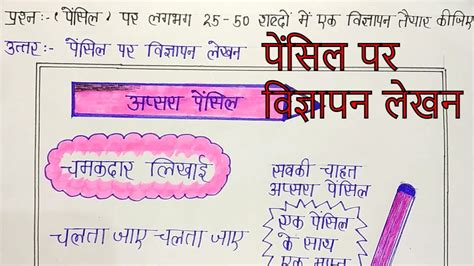 प्रश्न:- 'पेंसिल' पर लगभग 25-50 शब्दों में एक विज्ञापन तैयार कीजिए
उत्तर:- पेंसिल पर विज्ञापन लेखन
पेंसिल पर
विज्ञापन लेखन
अप्सरा पेंसिल
चमकदार लिखाई
सबकी चाहत
अप्सरा पेंसिल
चलता जाए चलता जाए
एक पेंसिल
के साथ
एक मुफ्त